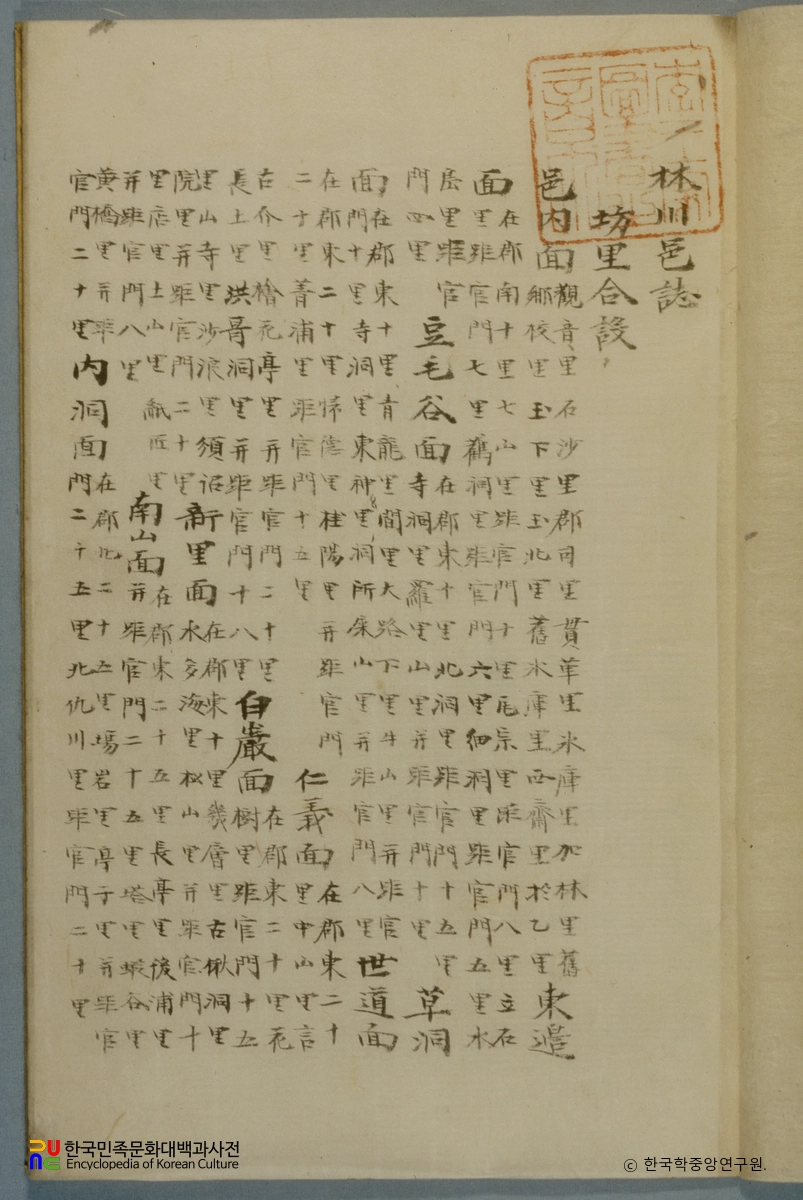 林川邑誌
坊里合設
邑內面
觀音里石沙里郡司里貫革里氷庫里加林里舊
鄕校里玉下里玉北里舊氷庫里西齋里於乙里
東邊
面
在郡南十里七山里距官門十里尾宗里距官門八里立石
里距官門七里鵂洞里距官門六里細洞里距官門五里水
居里距官
門四里
豆毛谷面
在郡東十里北洞里距官門十五里
寺洞里羅里山里并距官門十里
草洞
面
在郡東十里青龍里間里大路下里斗山里并距官
門十里寺洞里東神里洞所康山里并距官門八里
世道面
在郡東二十里悌德里桂陽里并距官門
二十里菁浦里距官門十五里
仁義面
在郡東二十
里中山里言
古介里檜花亭里并距官門二十里
長土里洪哥洞里并距官門十八里
白巖面
在郡東二十里花
樹里距官門十五
里山寺里沙浪里須
院里并距官門二十里
新里面
在郡東十里幾層里古楸洞里
水多海里松山里并距官門十
里店里土山里紙匠里
并距官門八里
南山面
在郡東二十五里長亭里後浦里
并距官門二十五里塔里蝦谷里
黃橋里并距
官門二十里
內洞面
在郡北二十五里場岩里亭子里并距官
門二十五里北仇川里距官門二十里
한국민족문화대백과사전
Encyclopedia of Korean Culture
ⓒ 한국학중앙연구원.